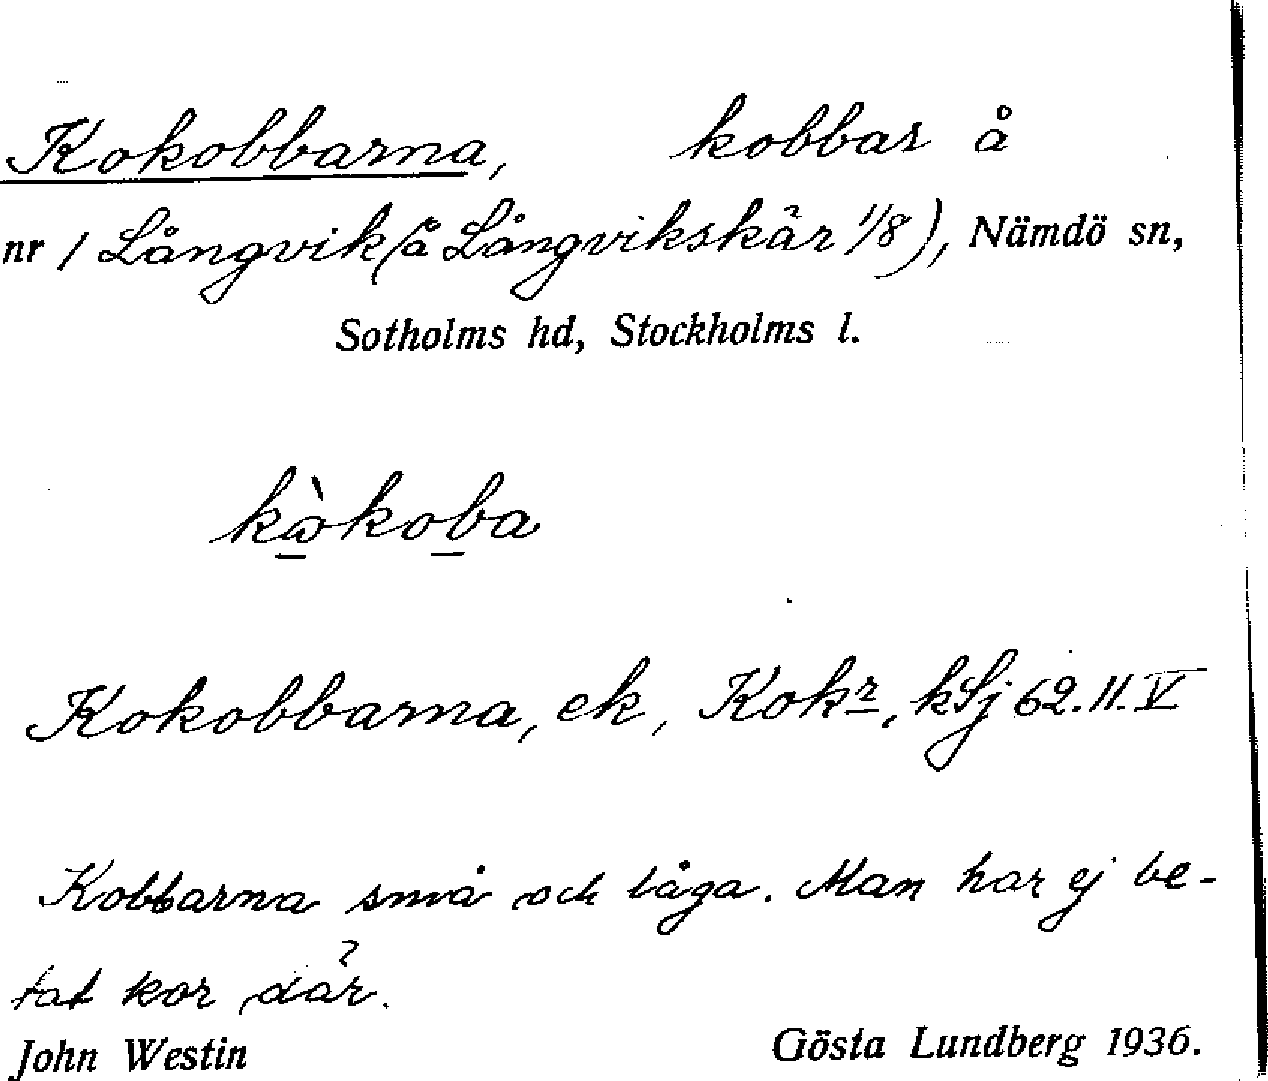 Kokobbarna, kobbar å
nr 1 Långvik (å Långvikskär 1/8), Nämdö sn,
Sotholms hd, Stockholms l.
kὼkoba
Kokobbarna, ek, Kokr, kSj 62.11.V
Kobbarna små och låga. Man har ej be-
tat kor där.
John Westin Gösta Lundberg 1936.